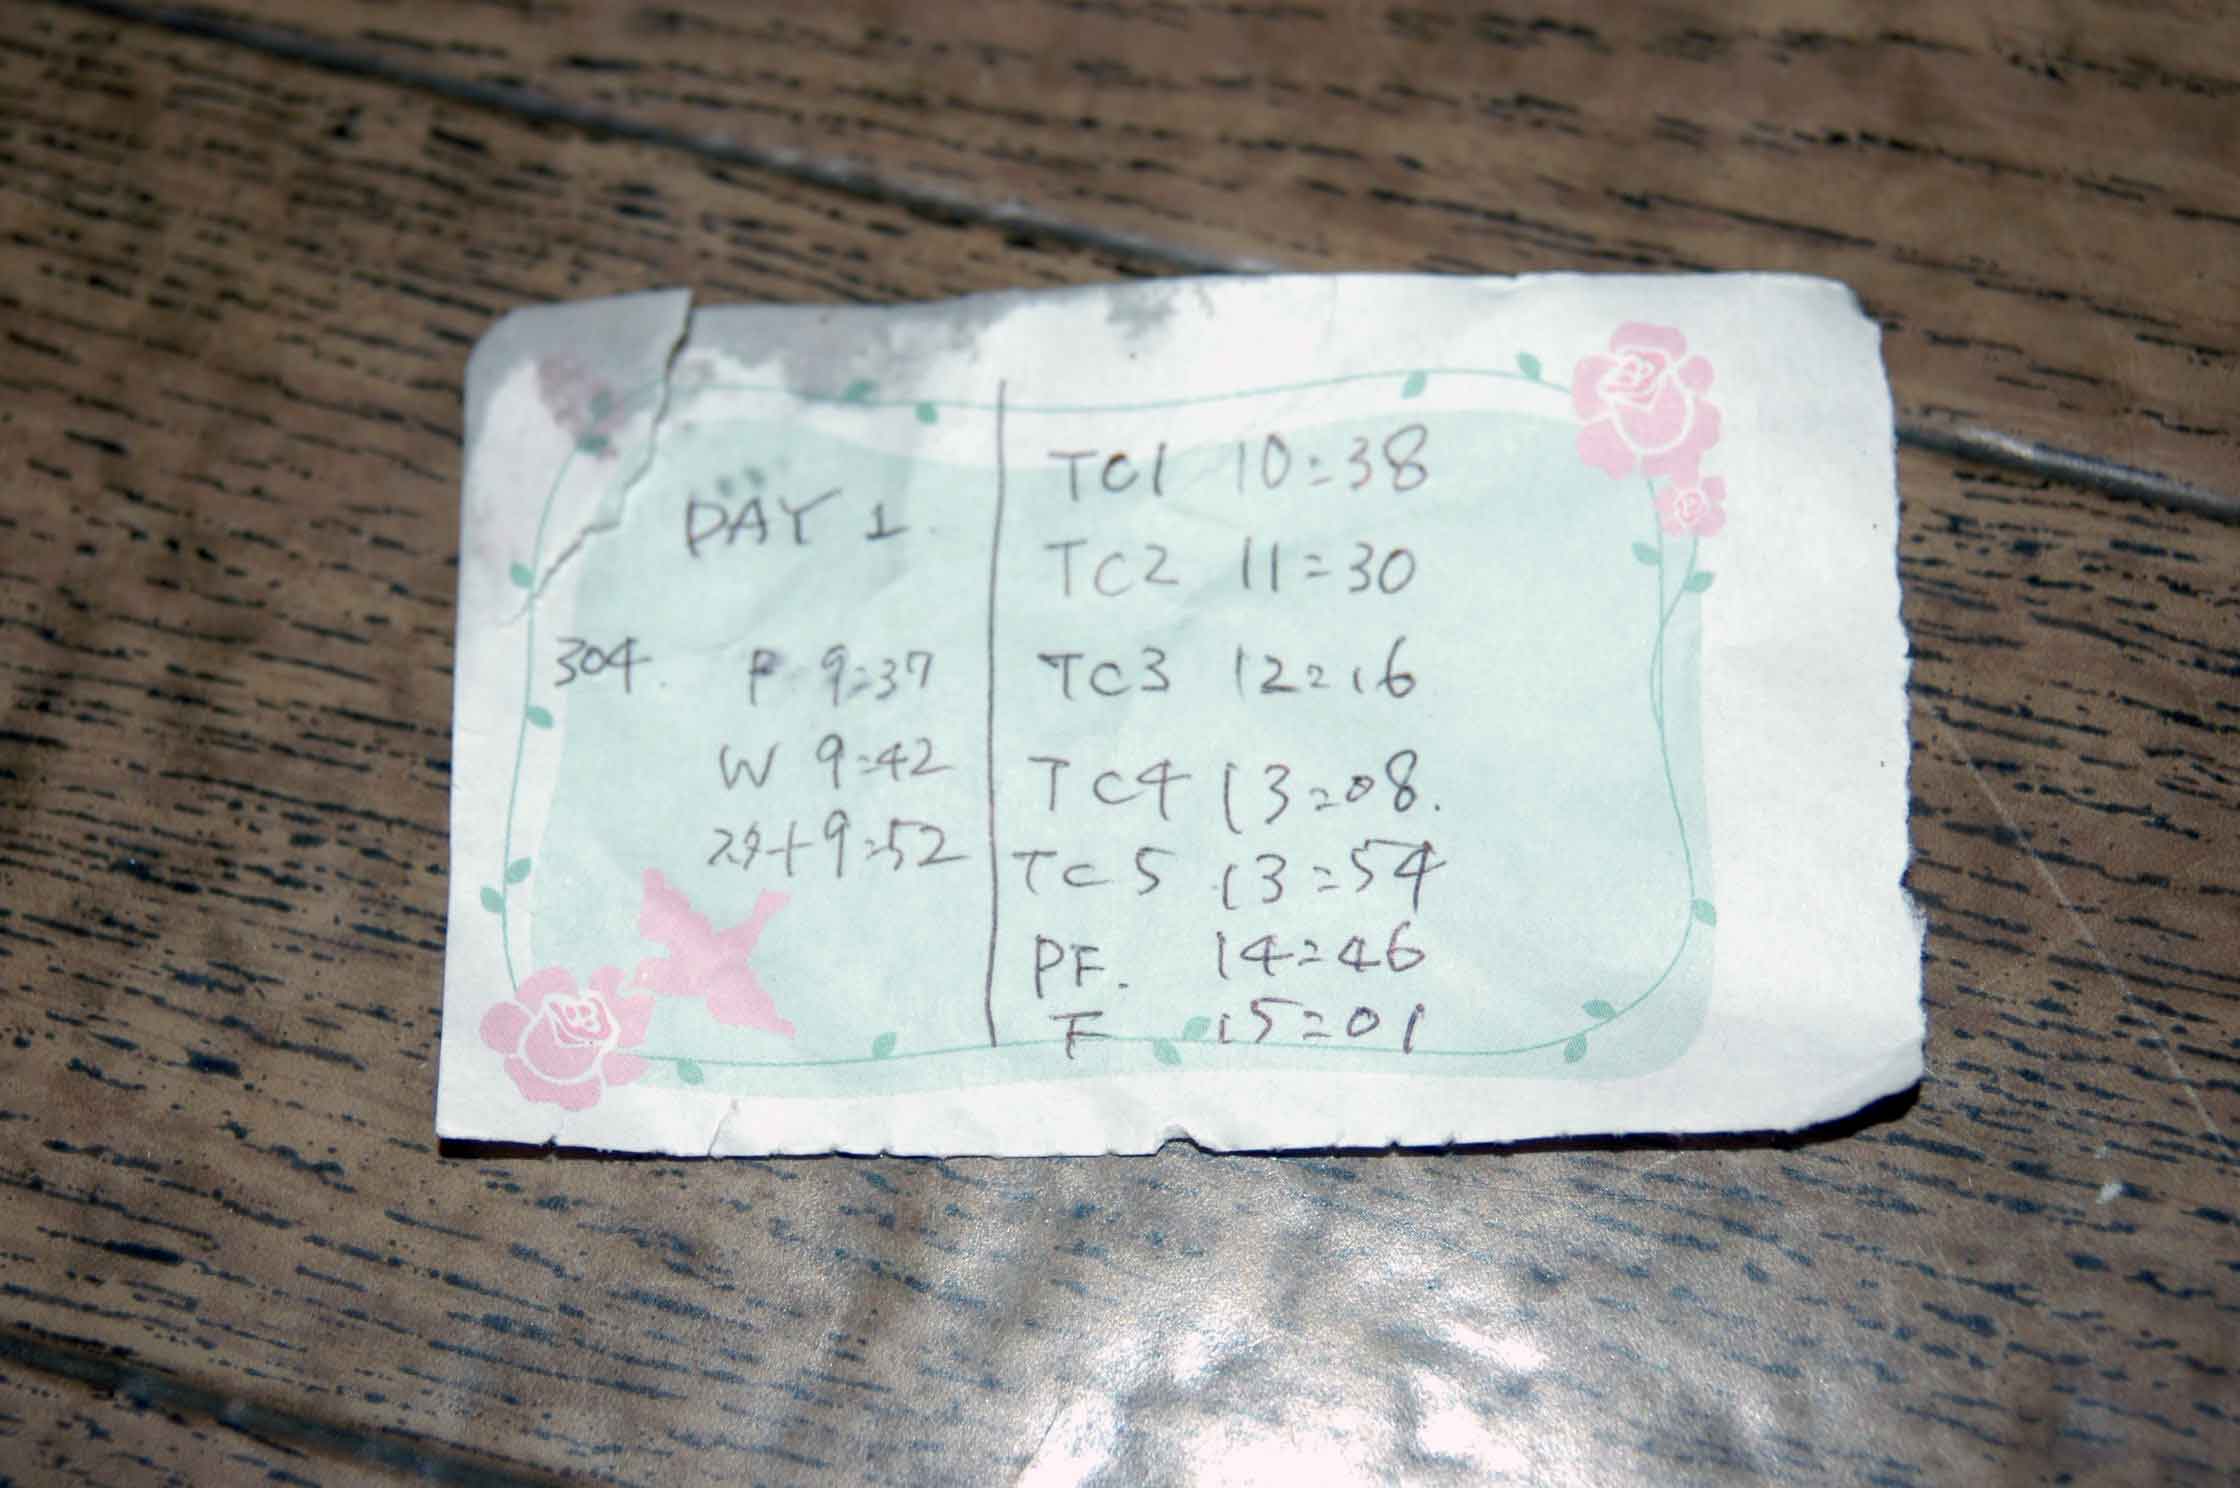 DAY 1.
304. P 9:37
W 9:42
スタート 9:52
TC1 10:38
TC2 11:30
TC3 12:16
TC4 13:08.
TC5 13:54
PF. 14:46
F 15:01